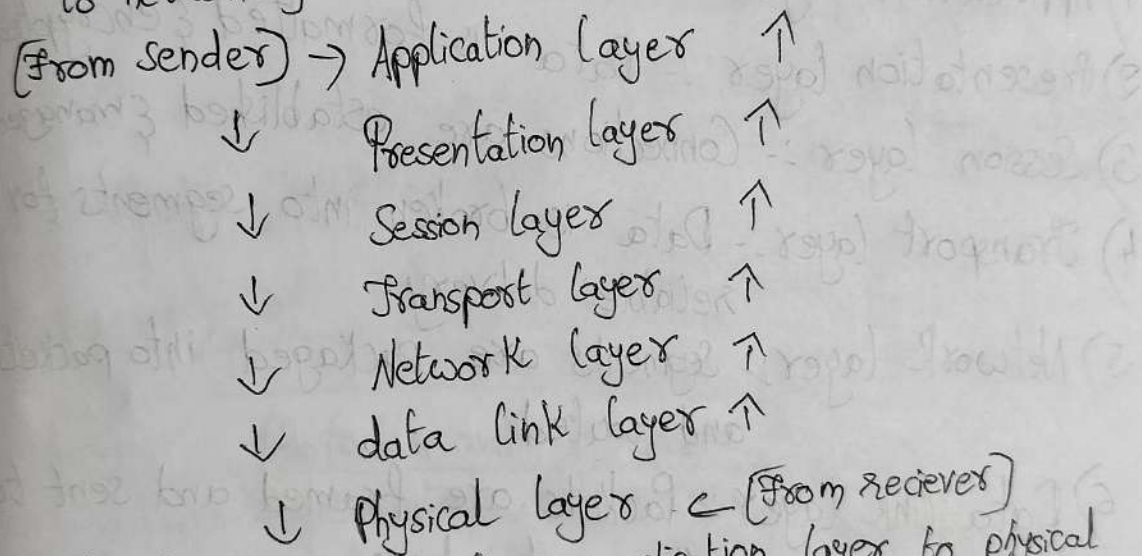 [From sender] → Application layer ↑
↓ Presentation layer ↑
↓ Session layer ↑
↓ Transport layer ↑
↓ Network layer ↑
↓ data link layer ↑
↓ Physical layer ← [From reciever]
layer to physical